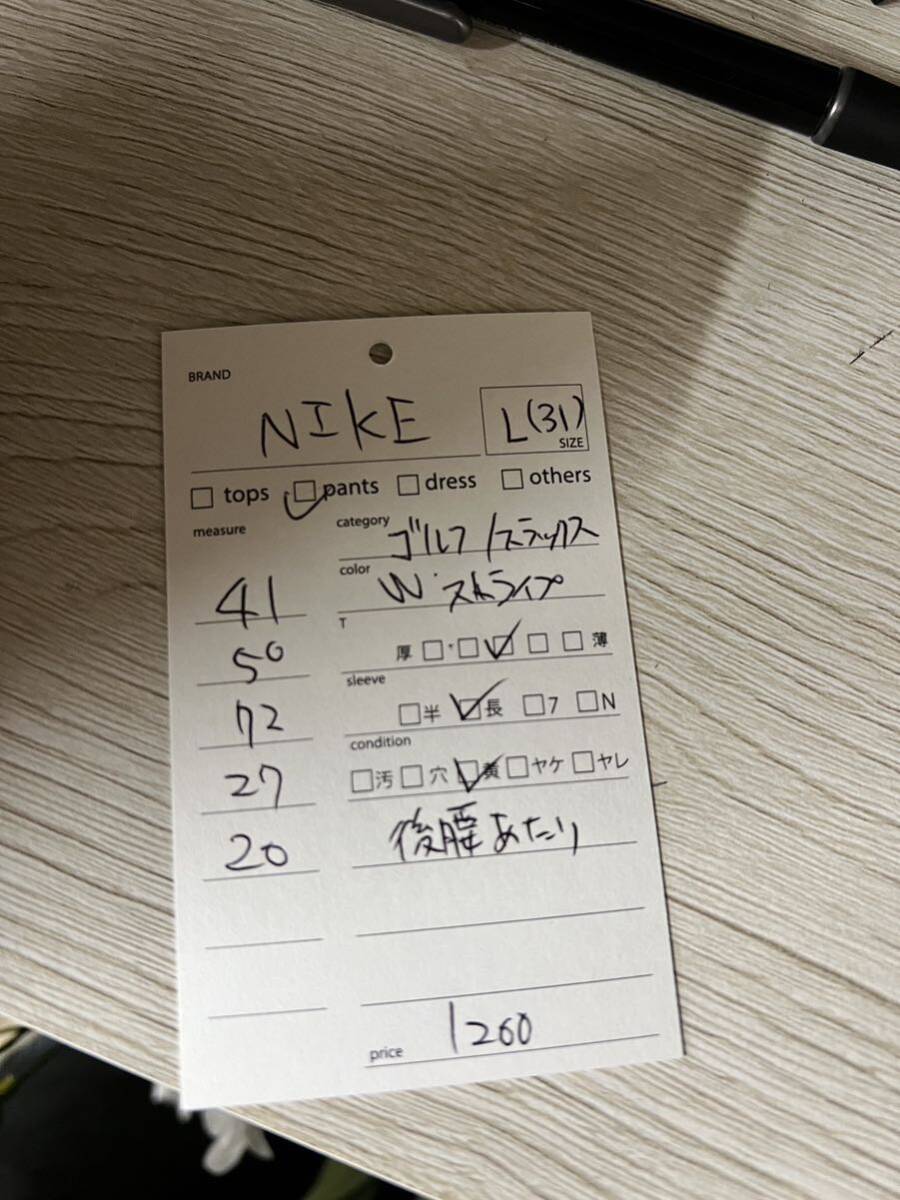 BRAND
NIKE
L(31)
SIZE
□ tops □ pants □ dress □ others
measure
category
ゴルフ/スラックス
color
W・ストライプ
41
T
厚 □・□ □ □ □ 薄
50
sleeve
□半 □長 □7 □N
72
condition
□汚 □穴 □黄 □ヤケ □ヤレ
27
後腰あたり
20
price
1200